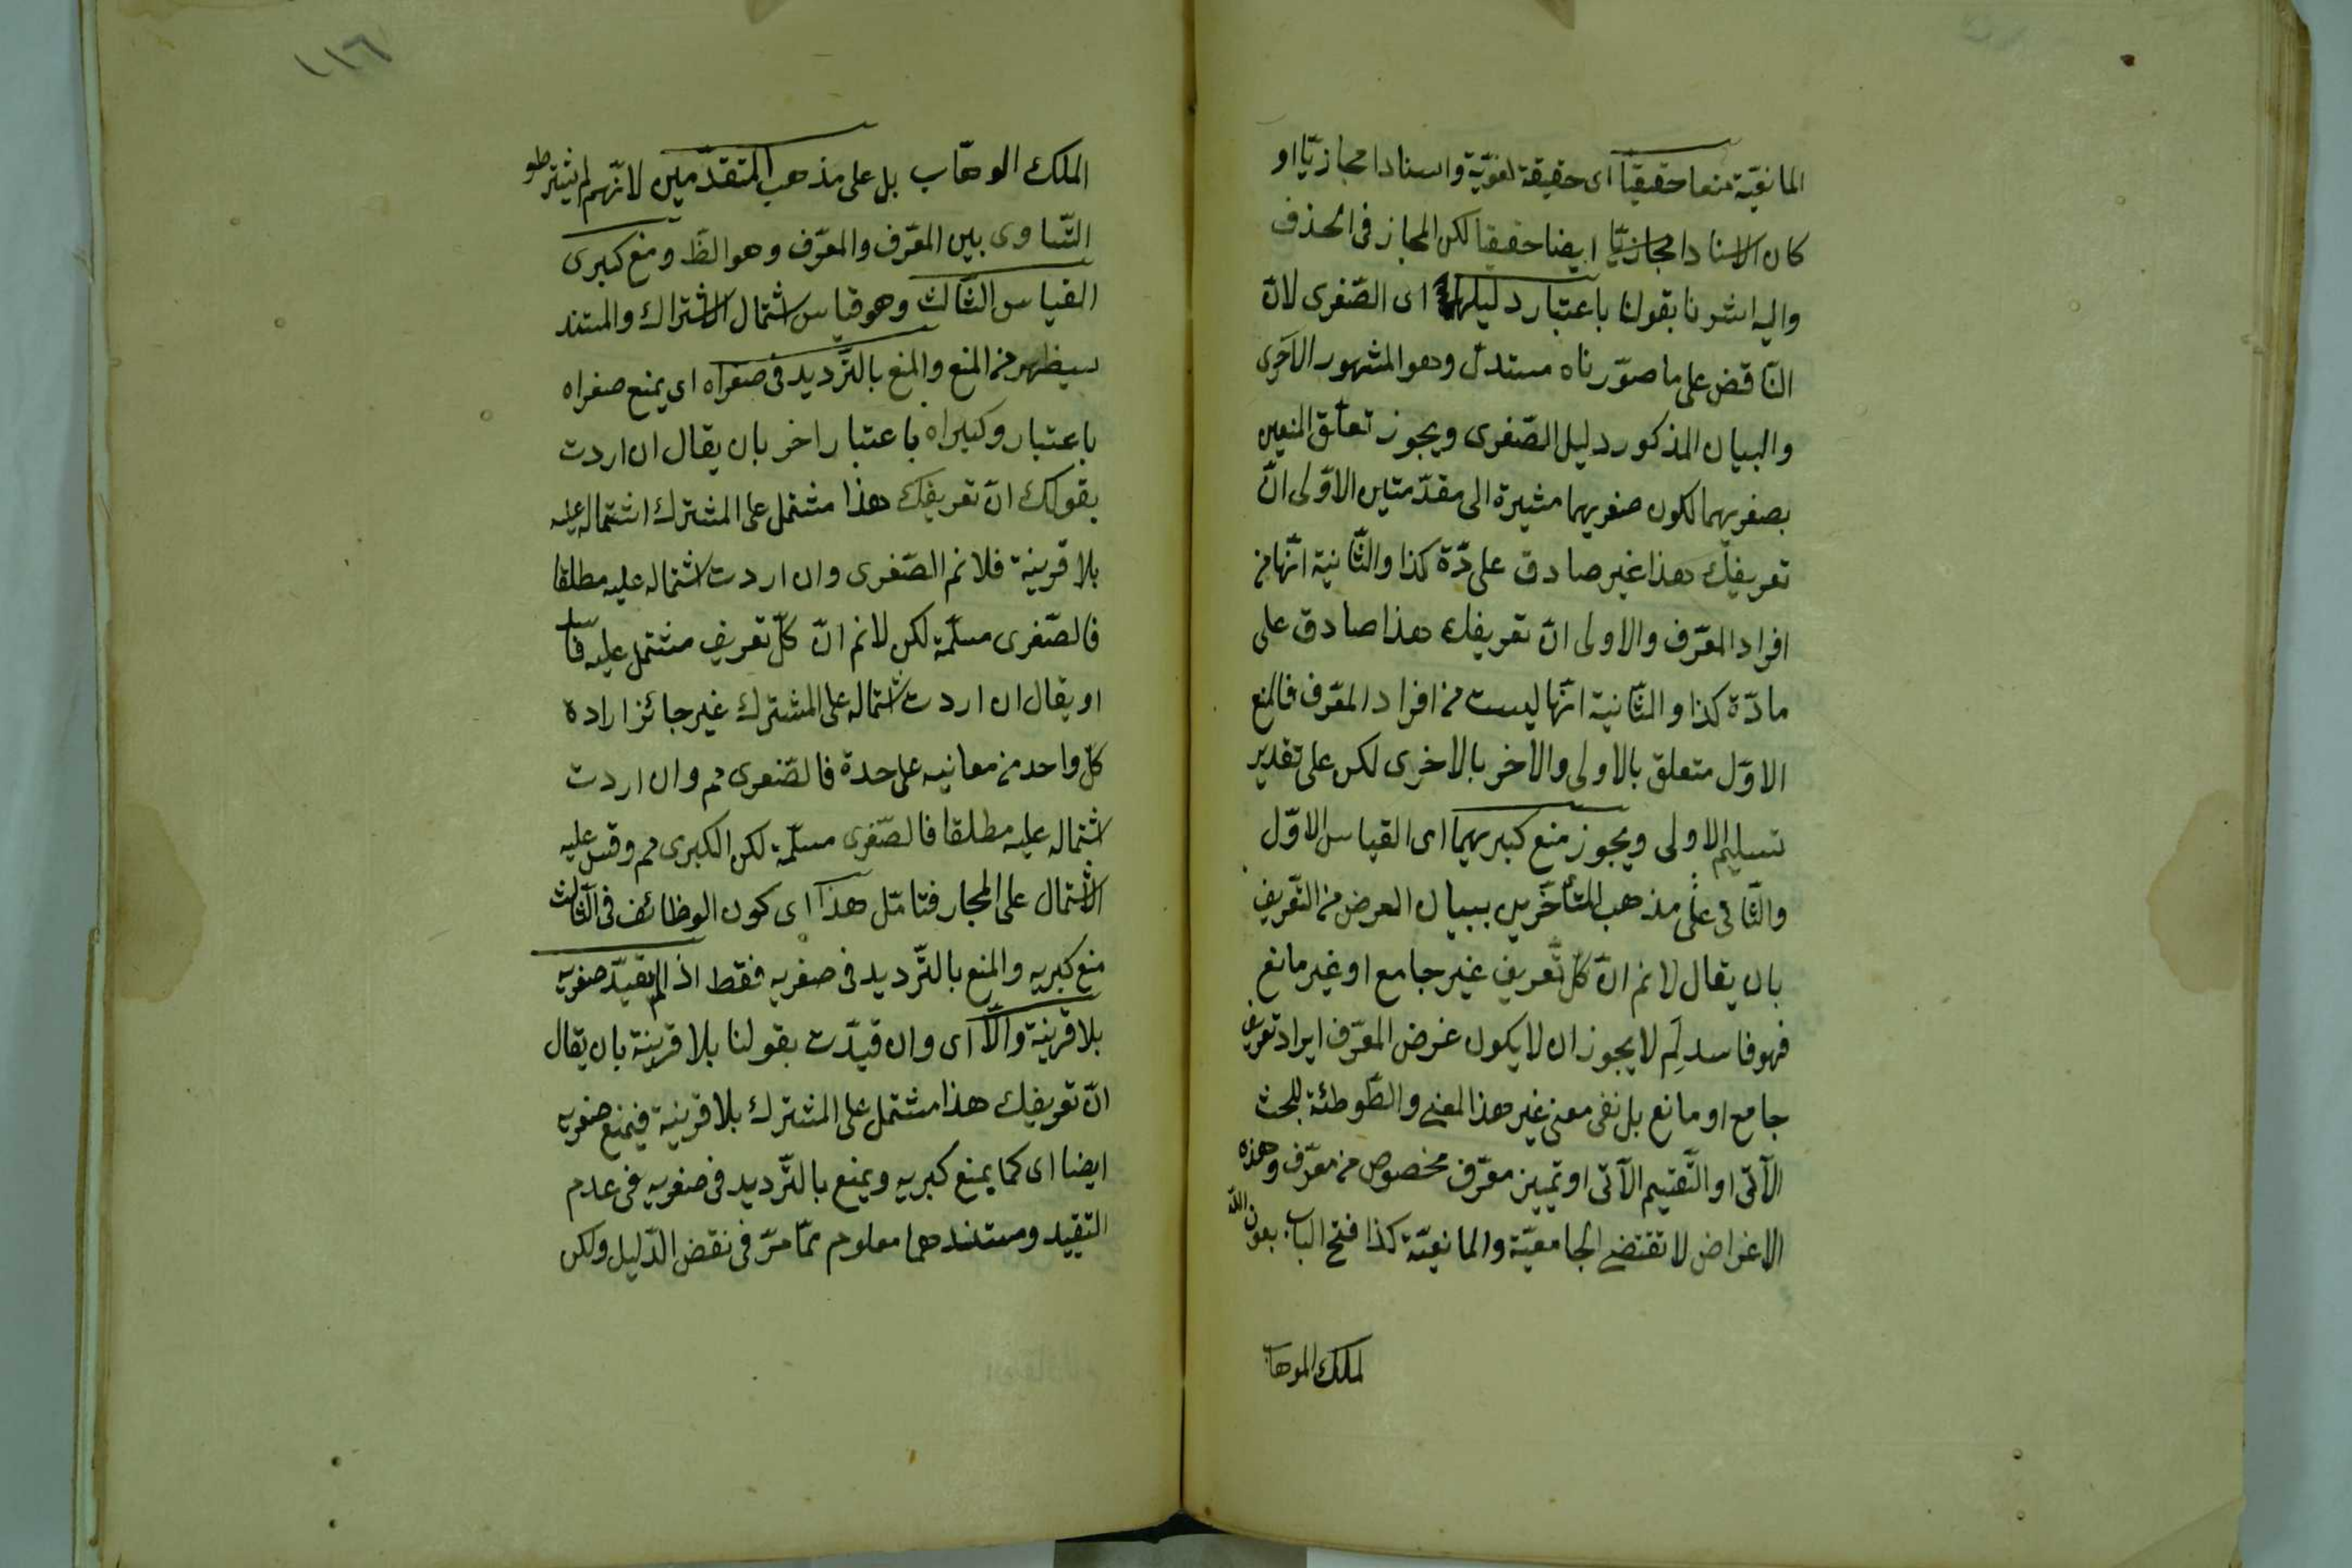 المانعيّة منعا حقيقيّا اى حقيقة لغويّة واسنادا مجازيّا او
كان الاسنادا مجازيّا ايضا حقيقيا لكن المجاز فى الحذف
واليه اشرنا بقولنا باعتبار دليلها اى الصّغرى لانّ
النّاقض على ما صوّرناه مستدلّ وهو المشهور الاحرى
والبيان المذكور دليل الصّغرى ويجوز تعلّق المنعين
بصغريهما لكون صغريهما مشيرة الى مقدّمتين الاوّلى انّ
تعريفك هذا غير صادق على دّة كذا والثّانية انّها من
افراد المعّرف والاولى انّ تعريفك هذا صادق على
مادّة كذا والثّانية انّها ليست من افراد المعّرف فالمنع
الاوّل متعلق بالاولى والاخر بالاخرى لكن على تقدير
تسليم الاولى ويجوز منع كبريهما اى القياس الاوّل
والثّانى على مذهب المتأخّرين ببيان الغرض من التّعريف
بان يقال لانم انّ كلّ تعريف غير جامع او غير مانع
فهو فاسد لِم لا يجوز ان لا يكون غرض المعّرف ايراد تعريف
جامع او مانع بل نفى معنى غير هذا المعنى والطّوطئة للبحث
الآتى او التّقسيم الآتى او تمييز معرّف مخصوص من معرّف وهذه
الاغراض لا تقتضى الجامعيّة والمانعيّة كذا فتح الباب بعون الله
لملك الموهاب
١١٦
الملك الوهّاب بل على مذهب المتقدّمين لانّهم لم يشترطو
التّساوى بين المعّرف والمعرّف وهو الظّ ومنع كبرى
القياس الثّالث وهو قياس اشتمال الاشتراك والمستند
سيظهر من المنع والمنع بالتّرديد فى صغراه اى يمنع صغراه
باعتبار وكبراه باعتبار اخر بان يقال ان اردت
بقولك انّ تعريفك هذا مشتمل على المشترك اشتماله عليه
بلا قرينة فلانم الصّغرى وان اردت اشتماله عليه مطلقا
فالصّغرى مسلّمة لكن لانم انّ كلّ تعريف مشتمل عليه فا
او يقال ان اردت اشتماله على المشترك غير جائز ارادة
كلّ واحد من معانيه على حدة فالصّغرى مم وان اردت
اشتماله عليه مطلقا فالصّغرى مسلّمة لكن الكبرى مم وقس عليه
الاشتمال على المجاز فتامّل هذا اى كون الوظائف فى الثّالث
منع كبريه والمنع بالتّرديد فى صغريه فقط اذ الم يقيّد صغريه
بلا قرينة والّا اى وان قيدّت بقولنا بلا قرينة بان يقال
انّ تعريفك هذا مشتمل على المشترك بلا قرينة فيمنع صغريه
ايضا اى كما يمنع كبريه ويمنع بالتّرديد فى صغريه فى عدم
التقييد ومستندهما معلوم ممّا مرّ فى نقض الدّليل ولكن